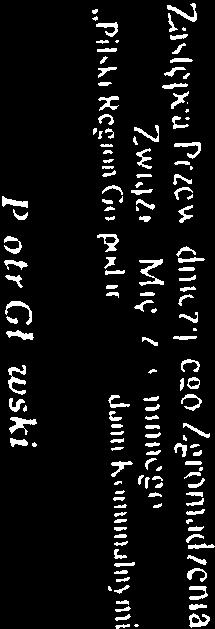 Zastępca Przewodniczącego Zgromadzenia
Związku Międzygminnego
„Pilski Region Gospodarki Odpadami Komunalnymi
Piotr Głowski